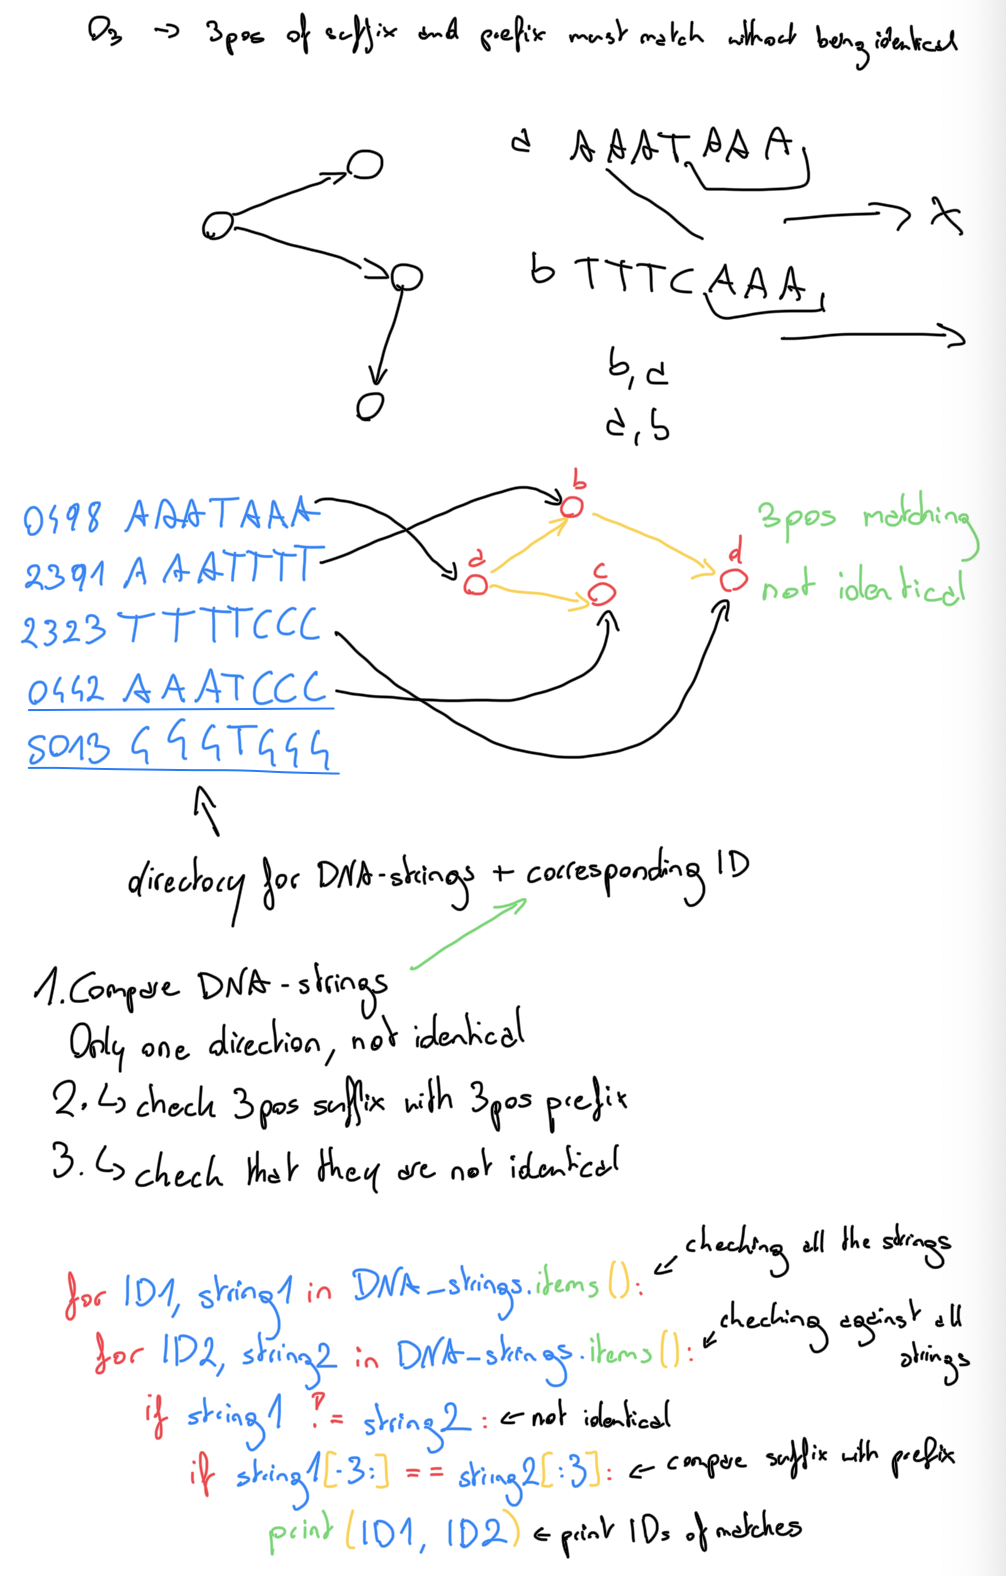 O3 → 3pos of suffix and prefix must match without being identical
a AAATAAA
→ X
b TTTCAAA
b, a
a, b
0498 AAATAAA
2391 AAATTTT
2323 TTTTCCC
0442 AAATCCC
5013 GGGTGGG
a
b
c
d
3pos matching
not identical
directory for DNA-strings + corresponding ID
1. Compare DNA-strings
Only one direction, not identical
2. ↳ check 3pos suffix with 3pos prefix
3. ↳ check that they are not identical
for ID1, string1 in DNA_strings.items(): ← checking all the strings
for ID2, string2 in DNA-strings.items(): ← checking against all strings
if string1 != string2: ← not identical
if string1[-3:] == string2[:3]: ← compare suffix with prefix
print (ID1, ID2) ← print IDs of matches